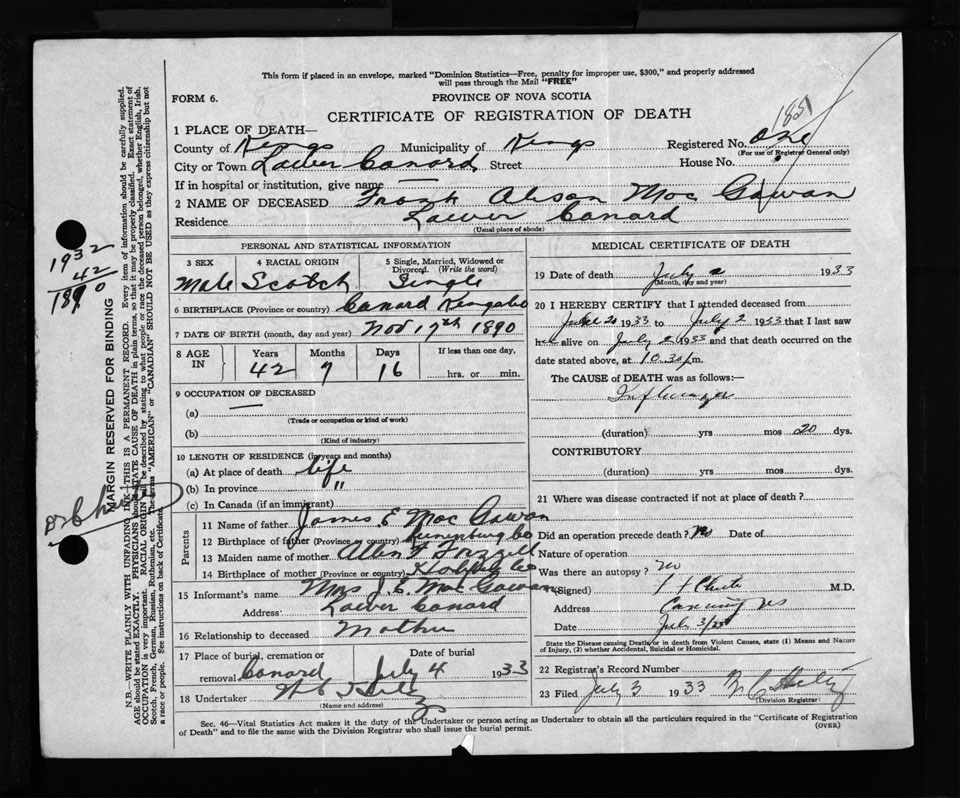 This form if placed in an envelope, marked "Dominion Statistics—Free, penalty for improper use, $300," and properly addressed
will pass through the Mail "FREE"
FORM 6.
PROVINCE OF NOVA SCOTIA
CERTIFICATE OF REGISTRATION OF DEATH
1851
1 PLACE OF DEATH—
County of Kings Municipality of Kings Registered No. one
(For use of Registrar General only)
City or Town Lower Canard, Street House No.
If in hospital or institution, give name —
2 NAME OF DECEASED Frank Alison Mac Gowan
Residence Lower Canard
(Usual place of abode)
PERSONAL AND STATISTICAL INFORMATION
3 SEX 4 RACIAL ORIGIN 5 Single, Married, Widowed or
Divorced. (Write the word)
Male Scotch Single
6 BIRTHPLACE (Province or country) Canard Kings Co
7 DATE OF BIRTH (month, day and year) Nov 17th 1890
8 AGE IN Years Months Days If less than one day,
42 7 16 hrs. or min.
9 OCCUPATION OF DECEASED
(a) —
(Trade or occupation or kind of work)
(b)
(Kind of industry)
10 LENGTH OF RESIDENCE (in years and months)
(a) At place of death life
(b) In province "
(c) In Canada (if an immigrant)
Parents
11 Name of father James E Mac Gowan
12 Birthplace of father (Province or country) Lunenburg Co
13 Maiden name of mother
14 Birthplace of mother (Province or country) Halifax Co
15 Informant's name Mrs J. E. Mac Gowan
Address Lower Canard
16 Relationship to deceased Mother
17 Place of burial, cremation or Date of burial
removal Canard July 4 1933
18 Undertaker
(Name and address)
MEDICAL CERTIFICATE OF DEATH
19 Date of death July 2 1933
(Month, day and year)
20 I HEREBY CERTIFY that I attended deceased from
June 20 1933 to July 2 1933 that I last saw
him alive on July 2 1933 and that death occurred on the
date stated above, at 10.30 p.m.
The CAUSE of DEATH was as follows:—
Influenza
(duration) yrs mos 20 dys.
CONTRIBUTORY
(duration) yrs. mos. dys.
21 Where was disease contracted if not at place of death?
Did an operation precede death? No Date of
Nature of operation
Was there an autopsy? No
(Signed) M.D.
Address Canning NS
Date July 3/33
State the Disease causing Death, or in death from Violent Causes, state (1) Means and Nature
of Injury, (2) whether Accidental, Suicidal or Homicidal.
22 Registrar's Record Number
23 Filed July 3 1933
(Division Registrar)
Sec. 46—Vital Statistics Act makes it the duty of the Undertaker or person acting as Undertaker to obtain all the particulars required in the "Certificate of Registration
of Death" and to file the same with the Division Registrar who shall issue the burial permit. (OVER)
MARGIN RESERVED FOR BINDING
N.B.—WRITE PLAINLY WITH UNFADING INK—THIS IS A PERMANENT RECORD. Every item of information should be carefully supplied.
AGE should be stated EXACTLY. PHYSICIANS should STATE CAUSE OF DEATH in plain terms, so that it may be properly classified. Exact statement of
OCCUPATION is very important. RACIAL ORIGIN will be described by stating to what people or race the deceased person belonged, whether English, Irish,
Scotch, French, German, Russian, Ruthenian, etc. The terms "AMERICAN" or "CANADIAN" SHOULD NOT BE USED as they express citizenship but not
a race or people. See instructions on back of Certificate.
1932
42
1890